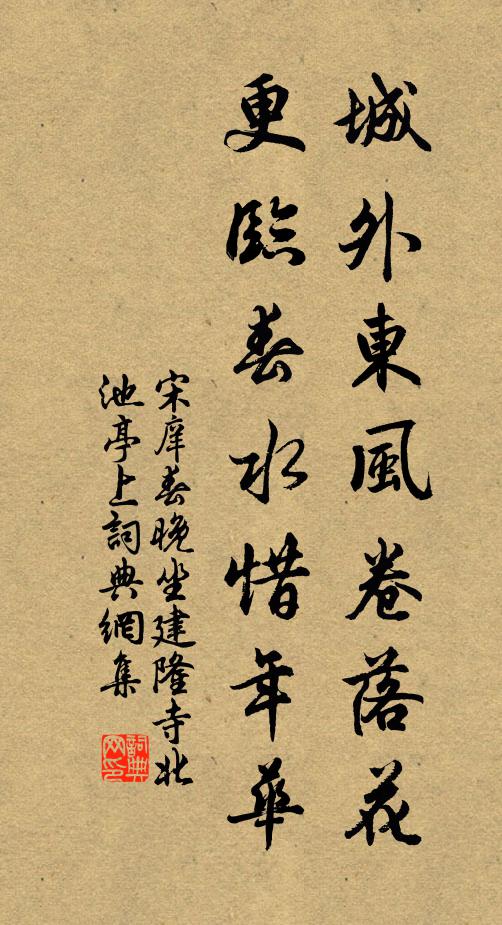 城外東風卷落花
更臨春水惜年華
宋庠春晚坐建隆寺北
池亭上詞典網集
詞典
网印